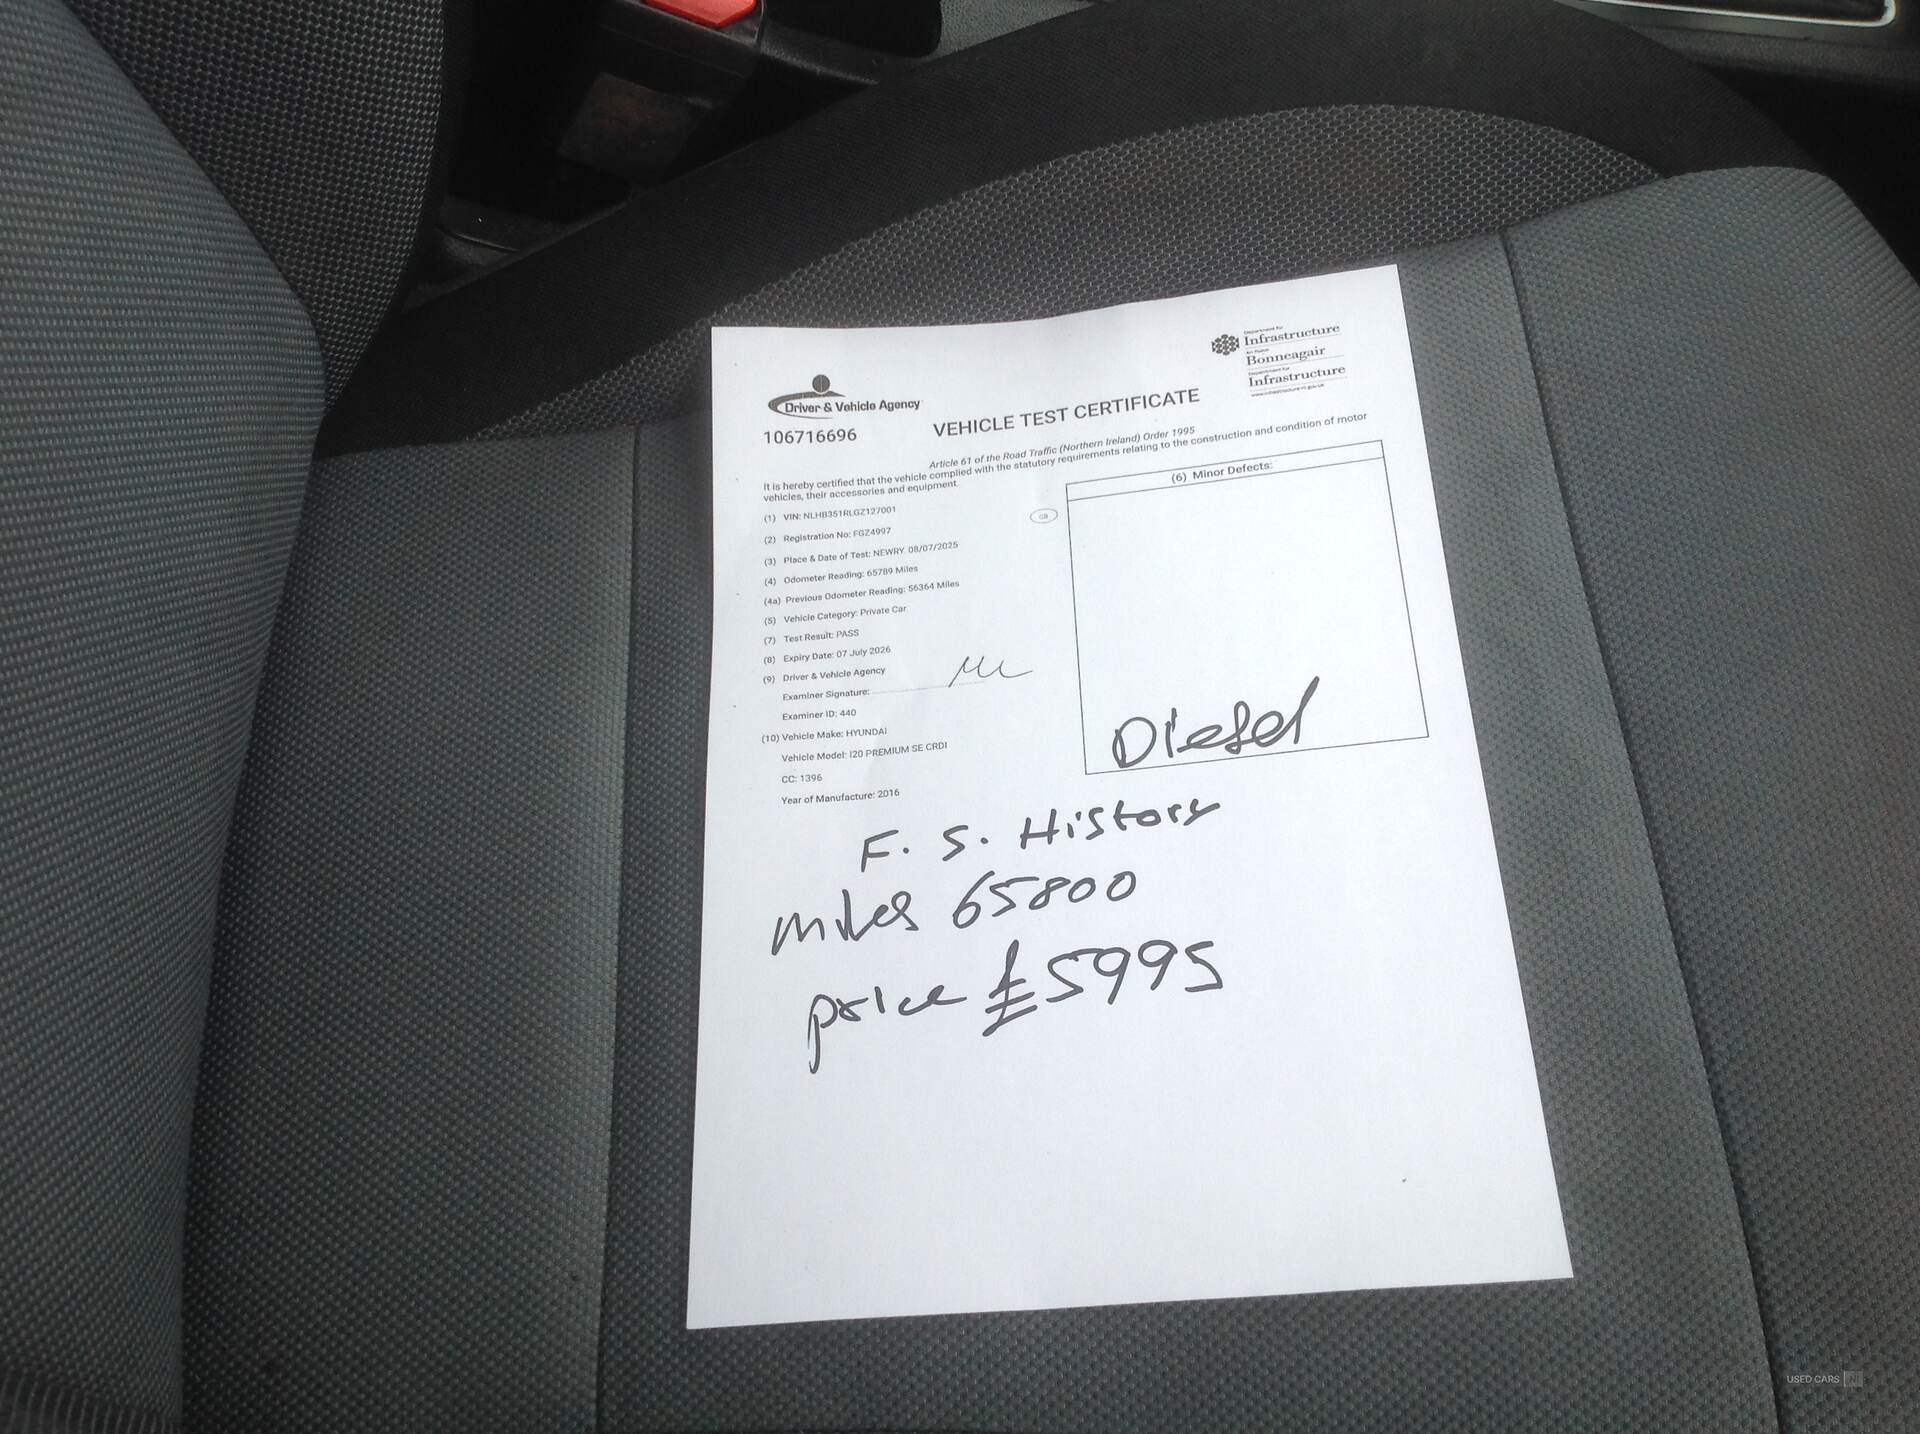 Driver & Vehicle Agency
106716696
Department for
Infrastructure
An Roinn
Bonneagair
Department for
Infrastructure
www.infrastructure-ni.gov.uk
VEHICLE TEST CERTIFICATE
Article 61 of the Road Traffic (Northern Ireland) Order 1995
It is hereby certified that the vehicle complied with the statutory requirements relating to the construction and condition of motor
vehicles, their accessories and equipment.
(1) VIN: NLHB351RLGZ127001
GB
(2) Registration No: FGZ4997
(3) Place & Date of Test: NEWRY 08/07/2025
(4) Odometer Reading: 65789 Miles
(4a) Previous Odometer Reading: 56364 Miles
(5) Vehicle Category: Private Car
(7) Test Result: PASS
(8) Expiry Date: 07 July 2026
(9) Driver & Vehicle Agency
Examiner Signature:
Examiner ID: 440
(10) Vehicle Make: HYUNDAI
Vehicle Model: I20 PREMIUM SE CRDI
CC: 1396
Year of Manufacture: 2016
(6) Minor Defects:
Diesel
F. S. History
miles 65800
price £5995
USED CARS NI